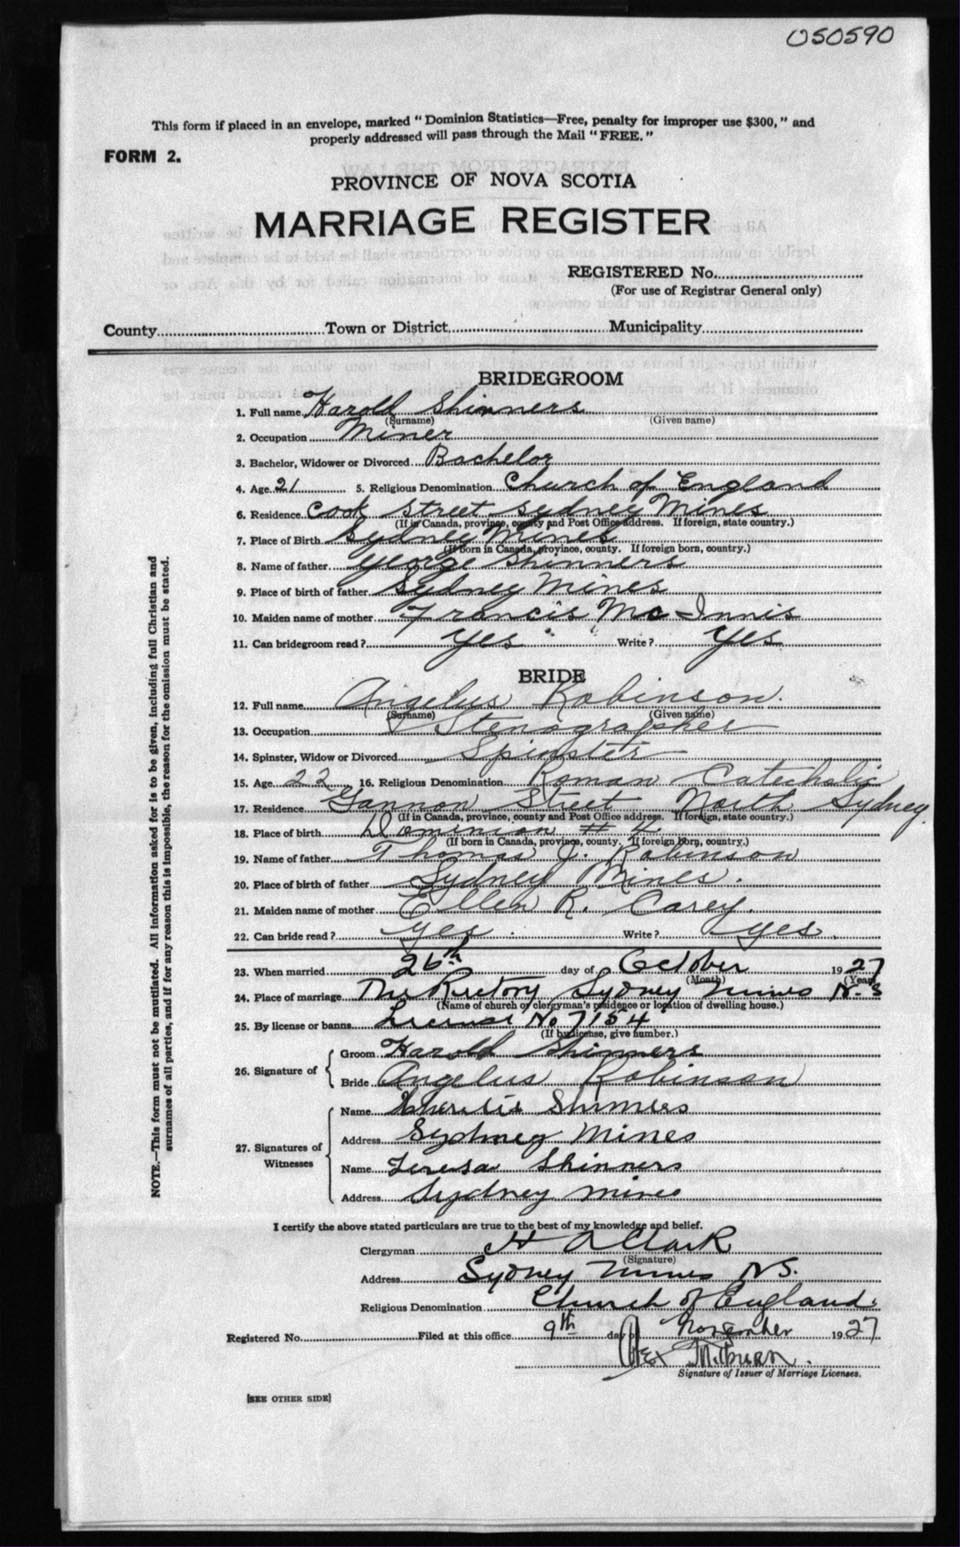 050590
This form if placed in an envelope, marked "Dominion Statistics—Free, penalty for improper use $300," and
properly addressed will pass through the Mail "FREE."
FORM 2.
PROVINCE OF NOVA SCOTIA
MARRIAGE REGISTER
REGISTERED No.
(For use of Registrar General only)
County Town or District Municipality
BRIDEGROOM
1. Full name Harold Shinners
(Surname) (Given name)
2. Occupation Miner
3. Bachelor, Widower or Divorced Bachelor
4. Age 21 5. Religious Denomination Church of England
6. Residence Cook Street Sydney Mines
(If in Canada, province, county and Post Office address. If foreign, state country.)
7. Place of Birth Sydney Mines
(If born in Canada, province, county. If foreign born, country.)
8. Name of father George Shinners
9. Place of birth of father Sydney Mines
10. Maiden name of mother Francis Mc Innis
11. Can bridegroom read? Yes Write? Yes
BRIDE
12. Full name Angelus Robinson.
(Surname) (Given name)
13. Occupation Stenographer
14. Spinster, Widow or Divorced Spinster
15. Age 22 16. Religious Denomination Roman Catecholic
17. Residence Gannon Street North Sydney.
(If in Canada, province, county and Post Office address. If foreign, state country.)
18. Place of birth Dominion # 4
(If born in Canada, province, county. If foreign born, country.)
19. Name of father Thomas J. Robinson
20. Place of birth of father Sydney Mines.
21. Maiden name of mother Ellen R. Carey.
22. Can bride read? Yes. Write? Yes.
23. When married 26th day of October 1927
(Month) (Year)
24. Place of marriage The Rectory Sydney Mines N.S
(Name of church or clergyman's residence or location of dwelling house.)
25. By license or banns License No 7154
(If by license, give number.)
26. Signature of
Groom Harold Shinners
Bride Angelus Robinson
27. Signatures of Witnesses
Name Shinners
Address Sydney Mines
Name Teresa Shinners
Address Sydney Mines
I certify the above stated particulars are true to the best of my knowledge and belief.
Clergyman H A Clark
(Signature)
Address Sydney Mines N.S.
Religious Denomination Church of England.
Registered No. Filed at this office 9th day of November 1927
Alex Milburn.
Signature of Issuer of Marriage Licenses.
[SEE OTHER SIDE]
NOTE.—This form must not be mutilated. All information asked for is to be given, including full Christian and
surnames of all parties, and if for any reason this is impossible, the reason for the omission must be stated.